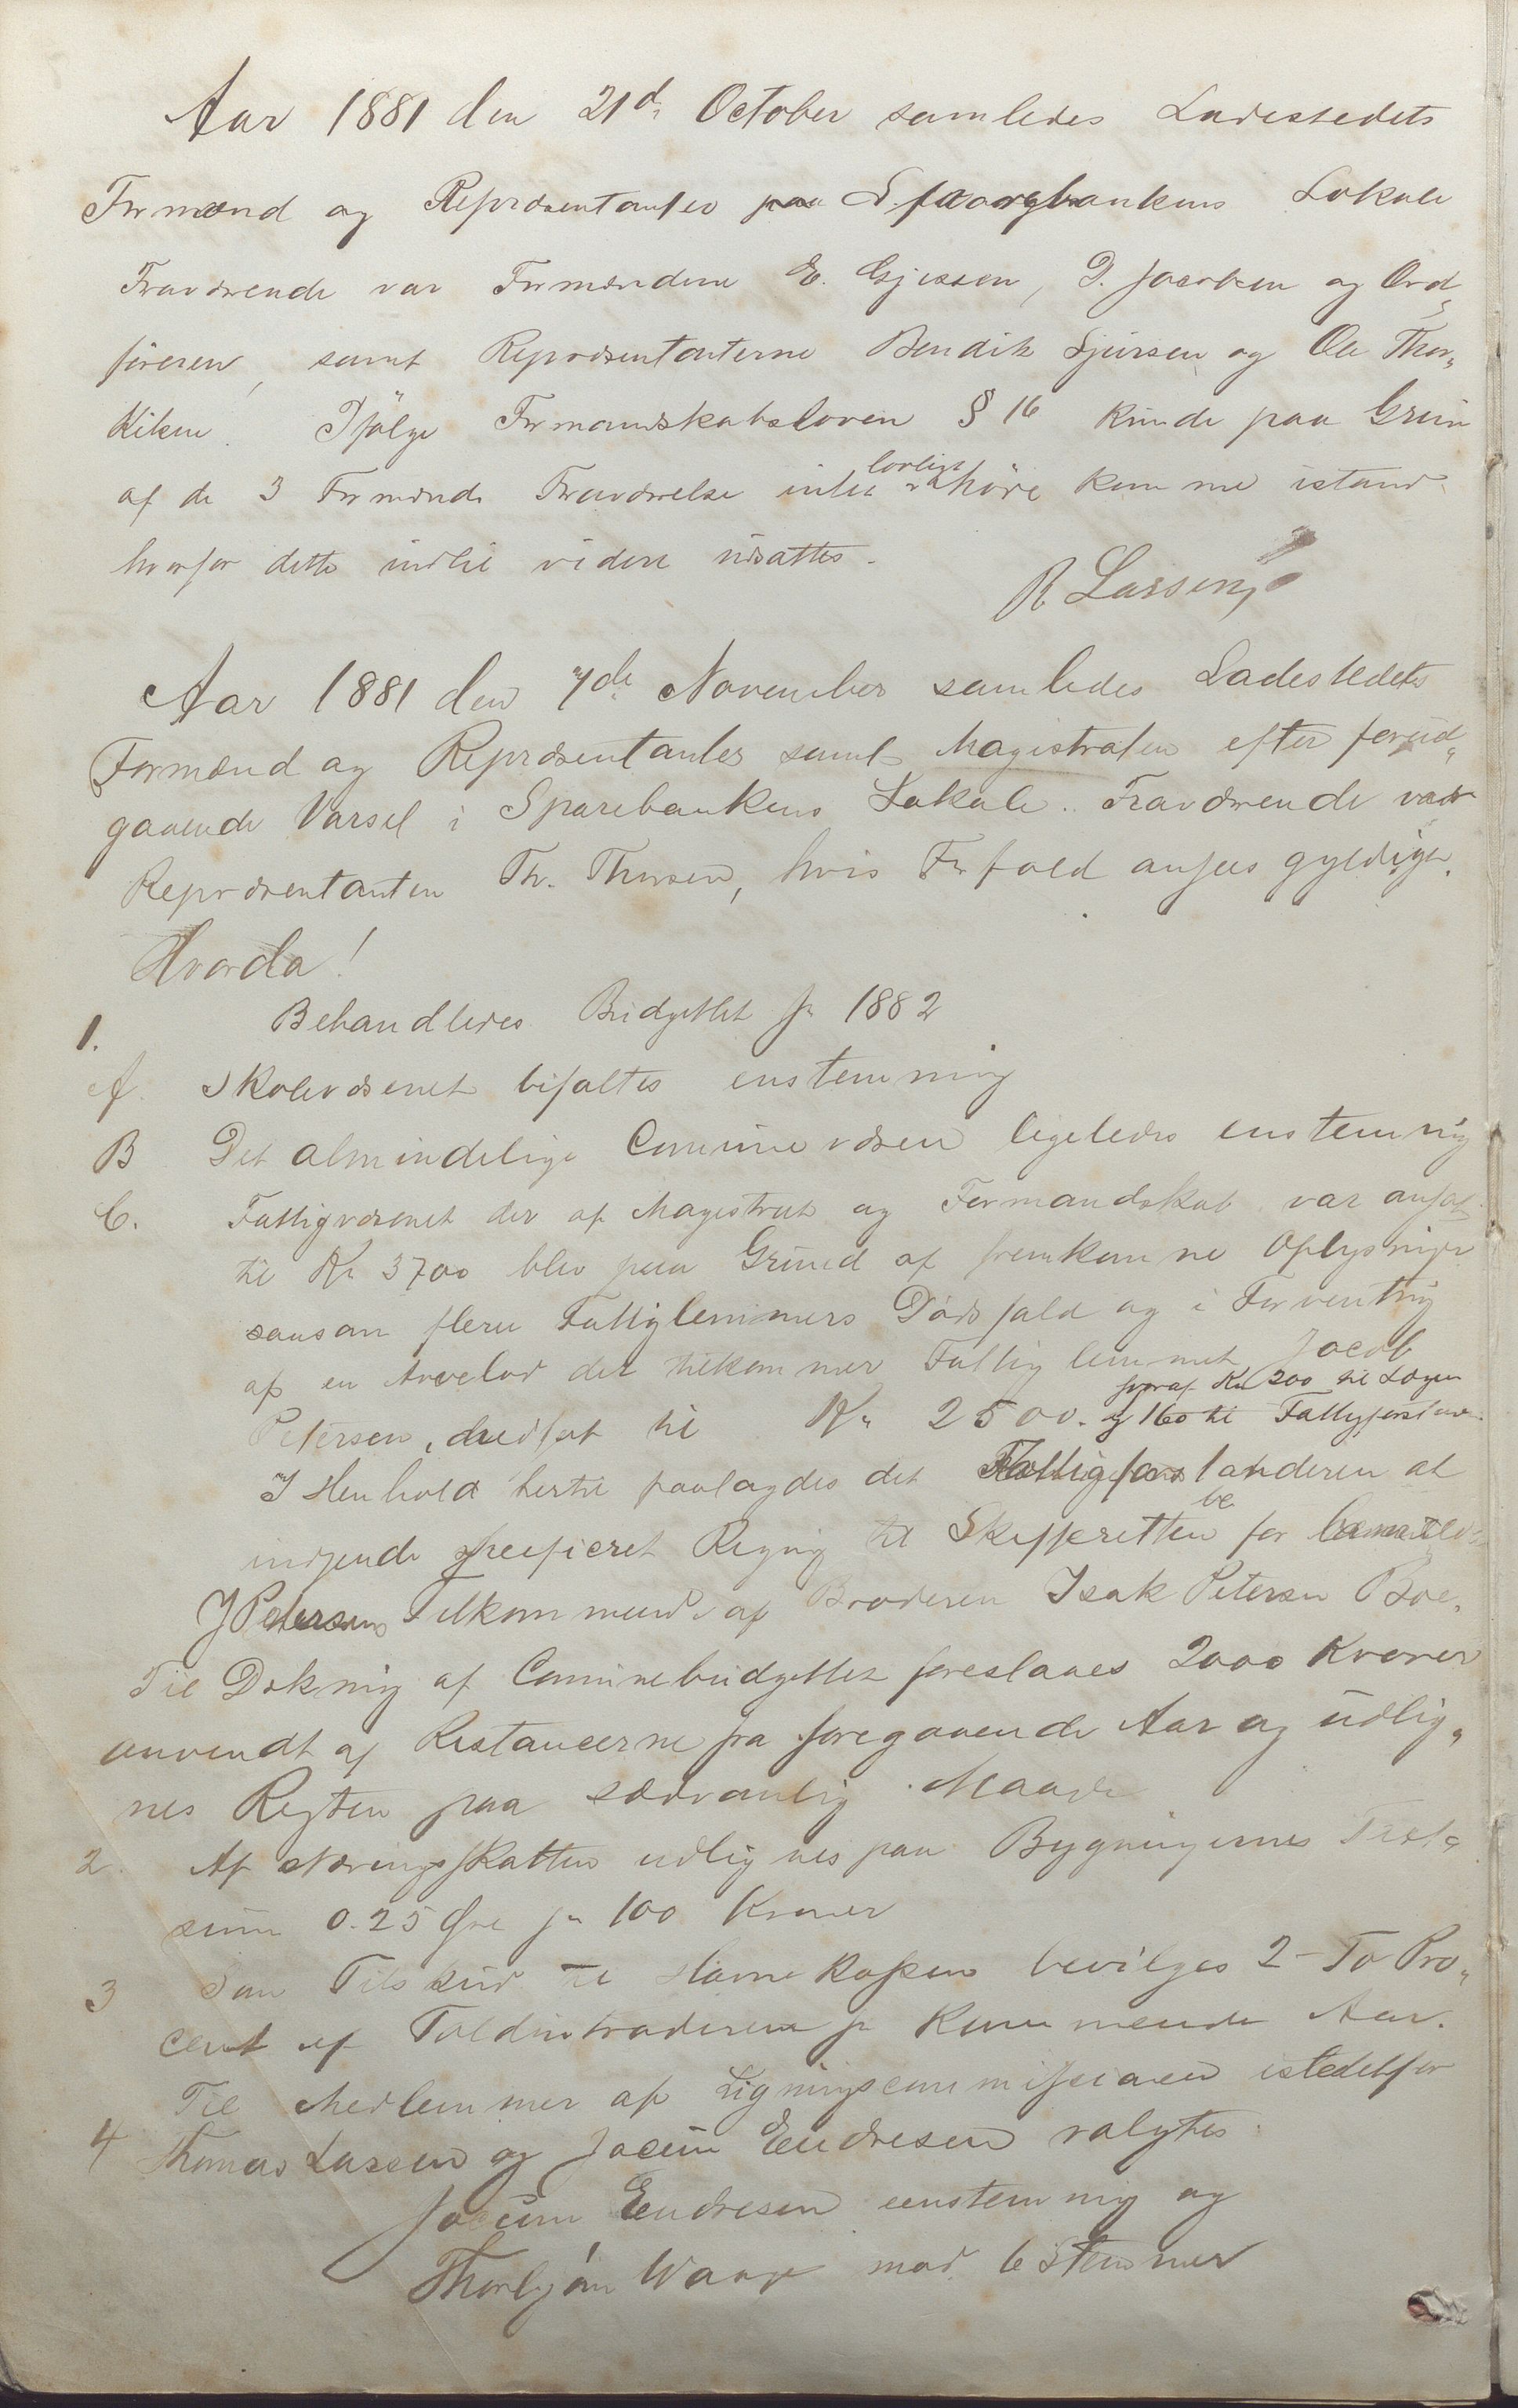 Aar 1881 den 21d. October samledes Ladestedets
Formænd og Repræsentanter paa Spaorgbankens Lokale
Fraværende var Formændene E. Gjessen, D. Jacobsen og Ord„
föreren, samt Repræsentanterne Bendik Sjursen og Ole Thor„
kilsen. Ifølge Formandskabsloven § 16 kunde paa Grun
af de 3 Formænds Fraværelse intet lovligt Möde komme istand
hvorfor dette indtil videre udsattes.
R Larsen
Aar 1881 den 7de November samledes Ladestedets
Formænd og Repræsentanter samt Magistraten efter forud„
gaaende Varsel i Sparebankens Lokale. Fraværende var
Repræsentanten Th. Thorsen, hvis Forfald ansees gyldigt.
Hvorda!
1. Behandledes Budgettet for 1882
A. Skolevæsenet bifaltes enstemmig
B Det almindelige Communevæsen ligeledes enstemmig
C. Fattigvæsenet der af Magistrat og Formandskab var ansat
til Kr 3700 blev paa Grund af fremkomne Oplysninger
saasom flere Fattiglemmers Dödsfald og i Forventning
af en Arvelod der tilkommer Fattiglemmet Jacob
Petersen, nedsat til Kr 2500. hvoraf Kr 200 til Lægen og 160 til Fattigforstand.
I Henhold hertil paalagdes det Fattigforstanderen at
indsende specificeret Regning til Skifteretten for bemeldte
J Petersens Tilkommende af Broderen Isak Petersen Boe.
Til Dækning af Communebudgettet foreslaaes 2000 Kroner
anvendt af Restancerne fra foregaaende Aar og udlig„
nes Resten paa sædvanlig Maade
2. Af Næringsskatten udlignes paa Bygningernes Taxt„
sum 0.25 Öre pr 100 Kroner
3 Som Tilskud til Havnekassen bevilges 2 - To Pro„
cent af Toldintraderne for kommende Aar.
Til Medlemmer af Ligningscommissionen istedetfor
4 Thomas Lassen og Jocum Endresen valgtes
Jocum Endresen enstemmig og
Thorbjörn Waage mod 6 Stemmer